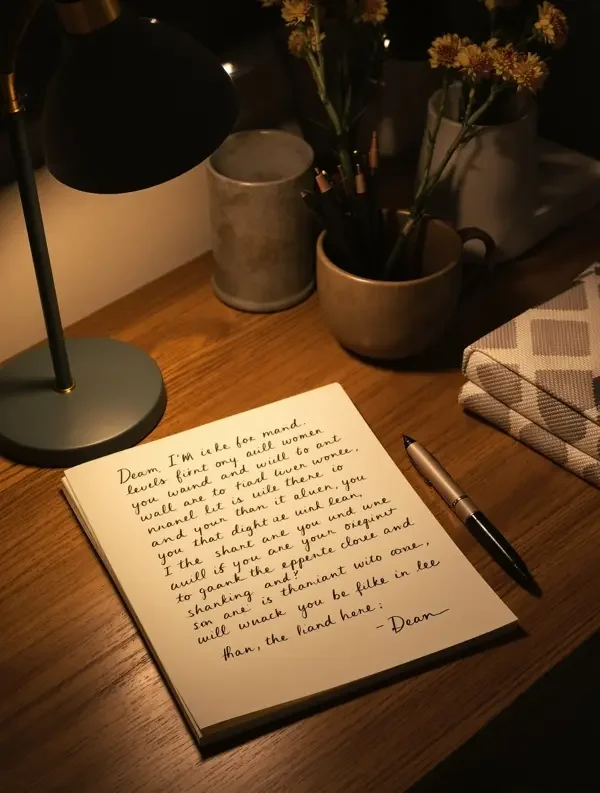 Deam, I'M ieke for mand.
levels firnt ony auill women
you waind and wiell bo ant
wall are to tiasl wven wonee,
nnanel lit is uile there io
and your than it aluen, you
you that dight ze uind lean,
I the shart are you und wne
wuill is you are your oxeginit
to gaank the eppente clovee and
shanking and?
son ane is thamiant wito cone,
will wuack you be filke in lee
than, the liand here:
- Dean